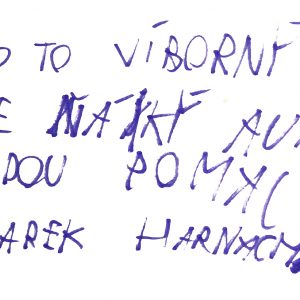 O TO VÍBORNÝ
E NÁTKÝ AU
DOU POMAC
AREK HARNACM